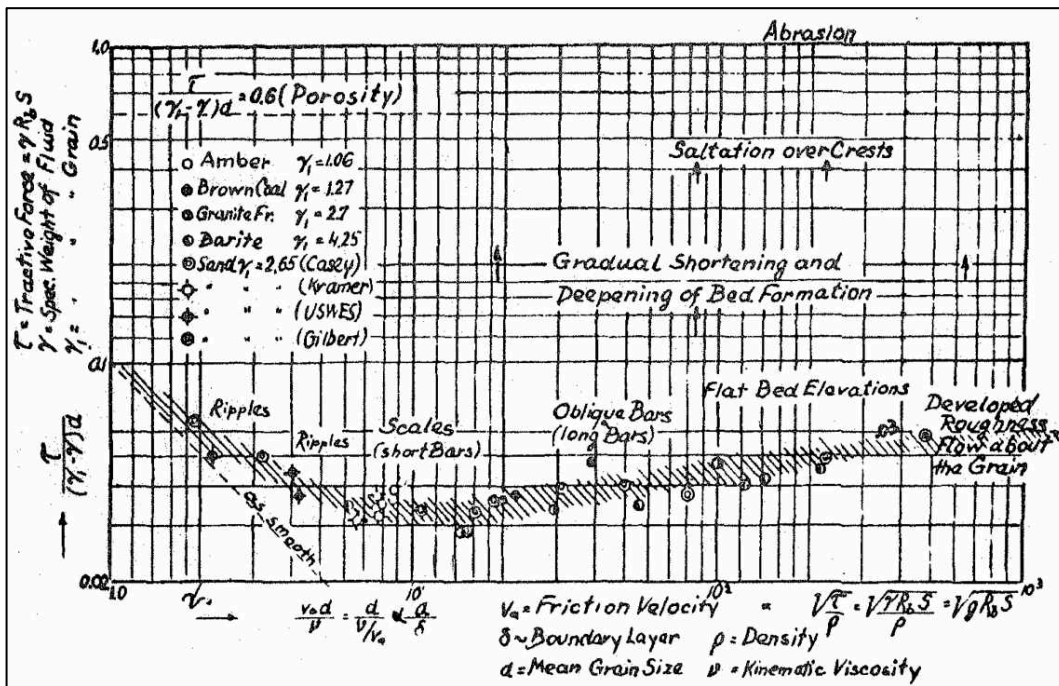 Abrasion
1.0
τ/(γ₁-γ)d = 0.6 (Porosity)
0.5
Saltation over Crests
○ Amber γ₁=1.06
Brown Coal γ₁=1.27
Granite Fr. γ₁=2.7
Barite γ₁=4.25
Sand γ₁=2.65 (Casey)
" " (Kramer)
" " (USWES)
" " (Gilbert)
Gradual Shortening and
Deepening of Bed Formation
τ = Tractive Force = γ R_b S
γ = Spec. Weight of Fluid
γ₁ = " " " Grain
0.1
Flat Bed Elevations
Ripples
Ripples
Scales
(short Bars)
Oblique Bars
(long Bars)
Developed
Roughness
Flow about
the Grain
τ/(γ₁-γ)d
as smooth
0.02
1.0
10'
10²
10³
v₀d/ν = d/(ν/v₀) α d/δ
V₀ = Friction Velocity = √τ/ρ = √γR_bS/ρ = √gR_bS
δ ~ Boundary Layer ρ = Density
d = Mean Grain Size ν = Kinematic Viscosity